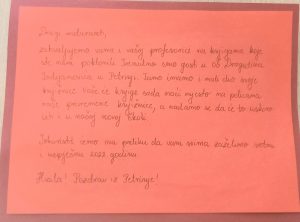 Dragi maturanti,
zahvaljujemo vama i vašoj profesorici na knjigama koje
ste nam poklonili. Trenutno smo gosti u OŠ Dragutina
Tadijanovića u Petrinji. Tamo imamo i mali dio svoje
knjižnice. Vaše će knjige sada naći mjesto na policama
naše privremene knjižnice, a nadamo se da će to uskoro
biti u našoj novoj školi.
Iskoristit ćemo ovu priliku da vam svima zaželimo sretnu
i uspješnu 2022. godinu.
Hvala! Pozdrav iz Petrinje!